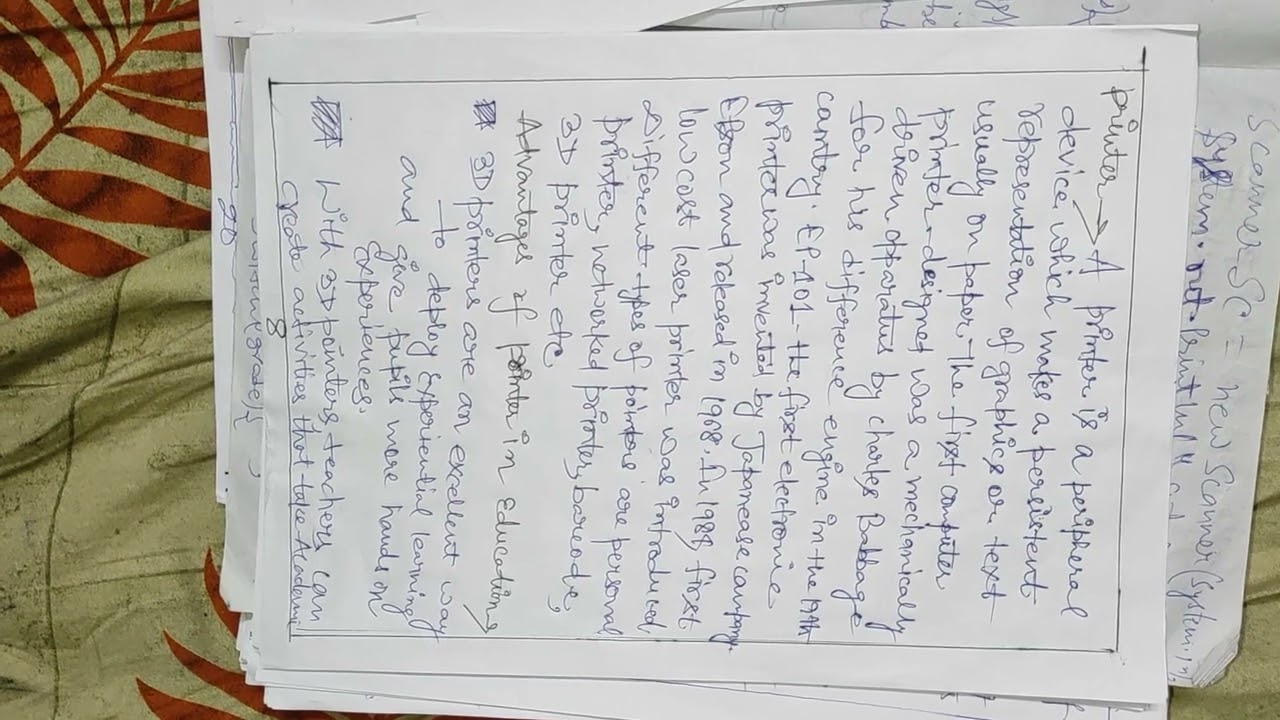 Scanner SC = new Scanner (System.in
System.out.println("
printer → A printer is a peripheral
device which makes a persistent
representation of graphics or text
usually on paper. The first computer
printer designed was a mechanically
driven apparatus by charles Babbage
for his difference engine in the 19th
cantury. EP-101 - the first electronic
printer was invented by Japanease campany
Epson and released in 1968. In 1988, first
low cost laser printer was introduced
Different types of printers are personal
printer, networked printer, barcode,
3D printer etc
Advantages of printer in Education
3D printers are an excellent way
to deploy experiential learning
and give pupils more hands on
experiences.
With 3D printers teachers can
create activities that take Academi
8